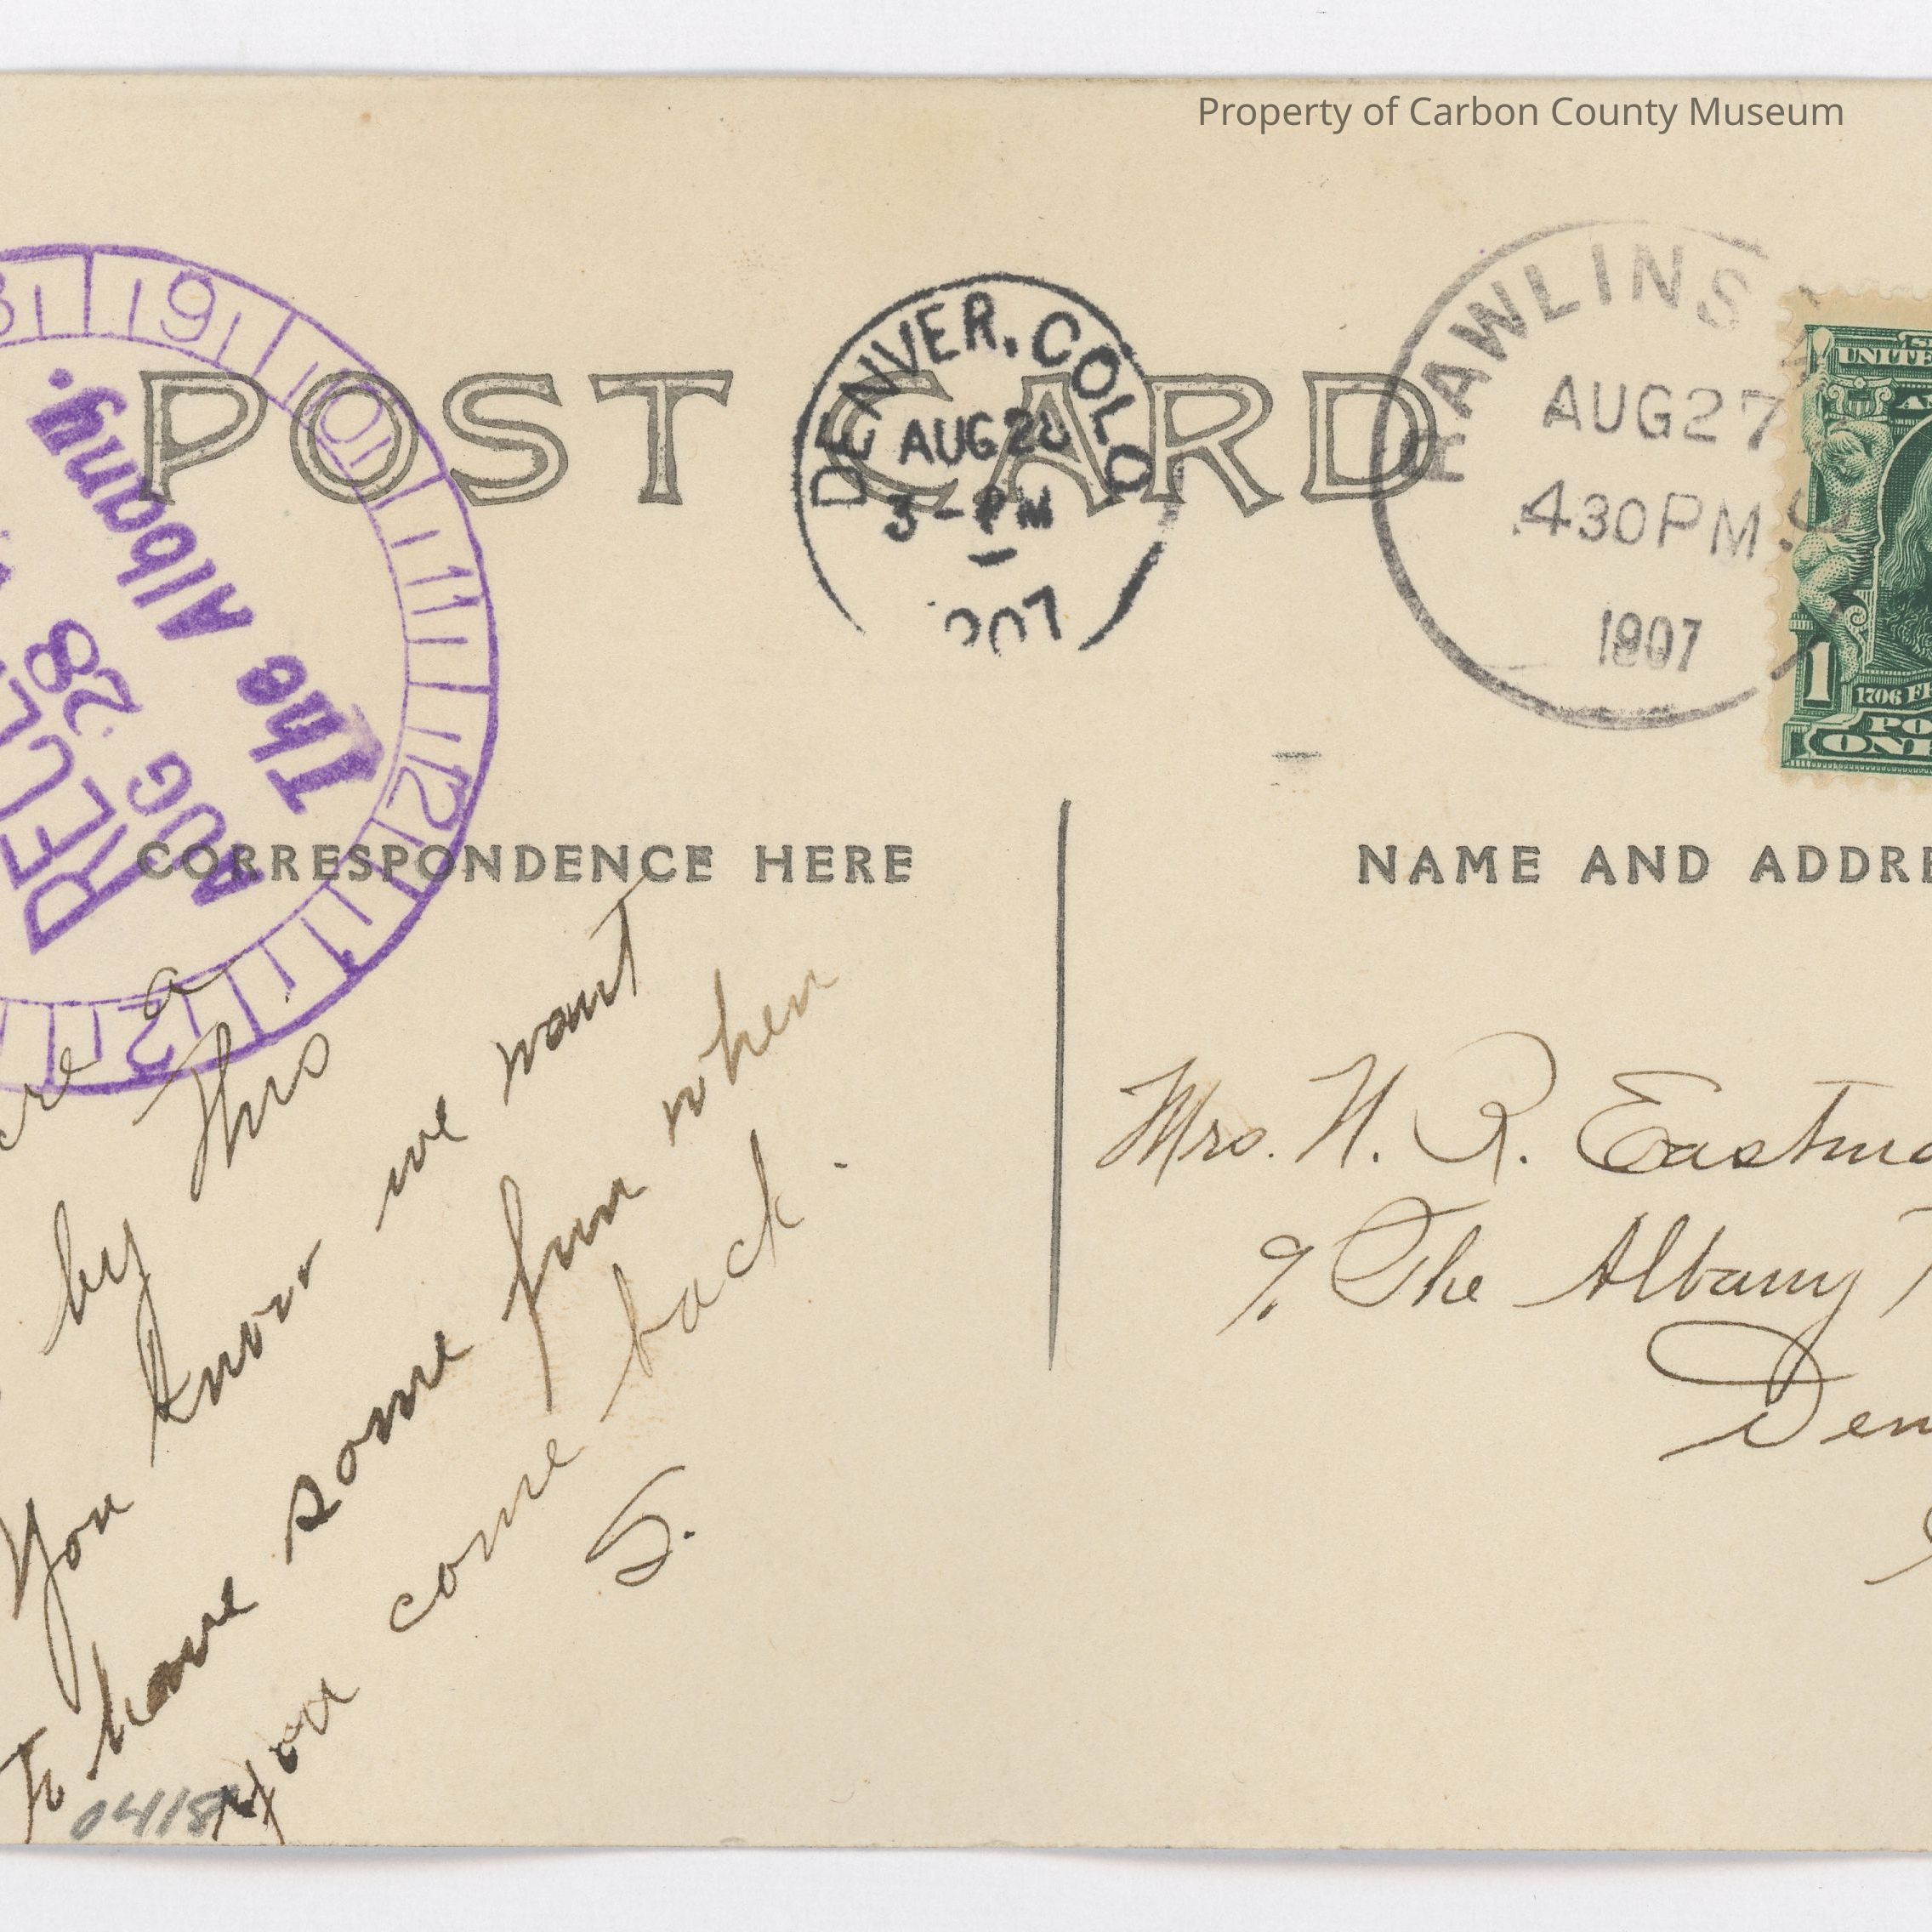 Property of Carbon County Museum
POST CARD
DENVER, COLO
AUG 28
3 - PM
907
RAWLINS
AUG 27
430 PM
1907
The Albany.
AUG 28
9 10 11 12 1 2
UNITE
1
1706 FR
PO
ONE
CORRESPONDENCE HERE
NAME AND ADDRE
a
by this
You know we want
To have some fun when
you come back.
S.
0418
Mrs. N. R. Eastma
% The Albany
Den